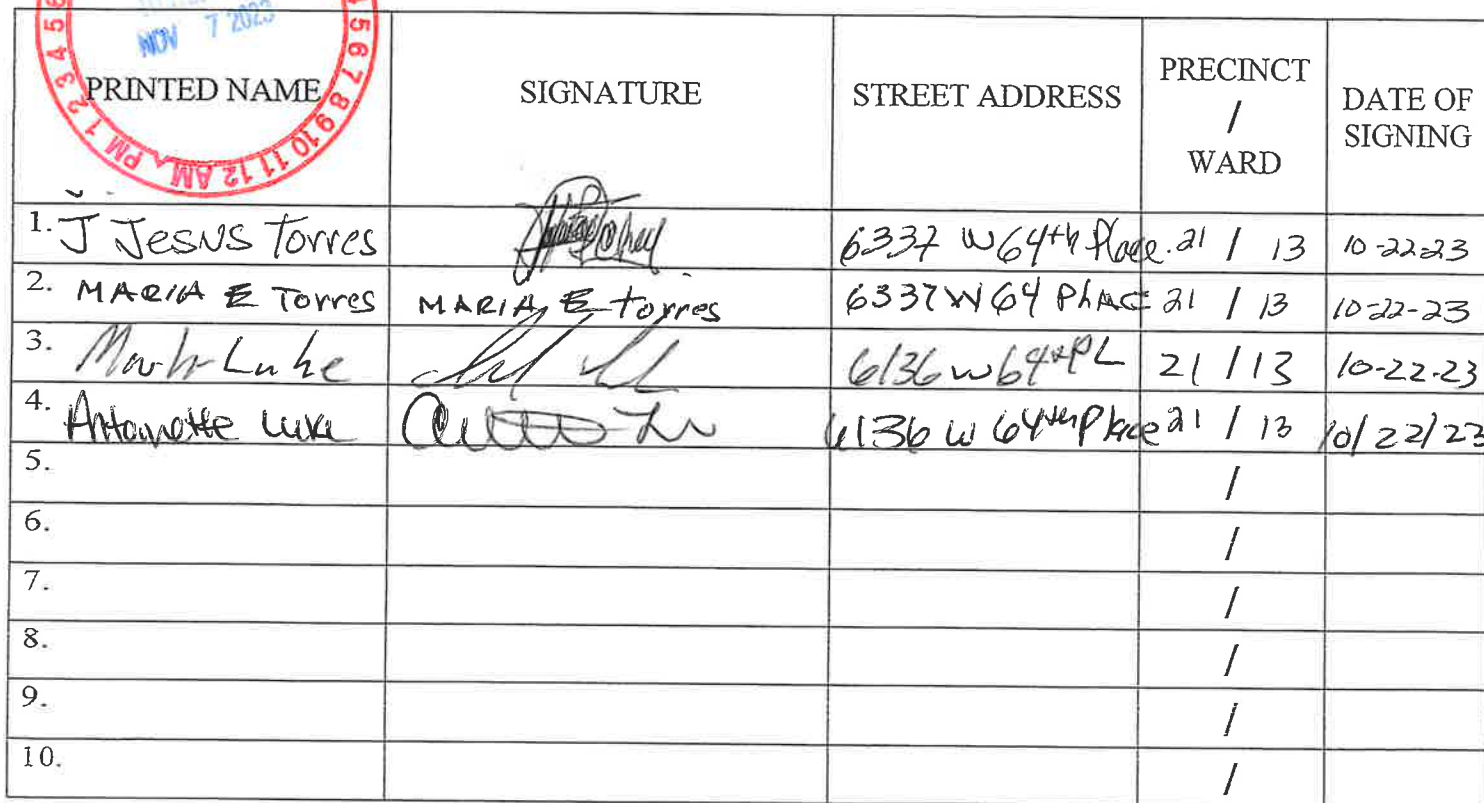 NOV 7 2023
3 4 5 6
4 5 6 7 8 9 10 11 12 AM PM 1 2
PRINTED NAME SIGNATURE STREET ADDRESS PRECINCT / WARD DATE OF SIGNING
1. J Jesus Torres 6337 W 64th Place. 21 / 13 10-22-23
2. MARIA E Torres MARIA E torres 6337 W 64 PhACE 21 / 13 10-22-23
3. Mark Luke 6136 W 64th PL 21 / 13 10-22-23
4. Antoinette Luke 6136 W 64th Place 21 / 13 10/22/23
5. /
6. /
7. /
8. /
9. /
10. /